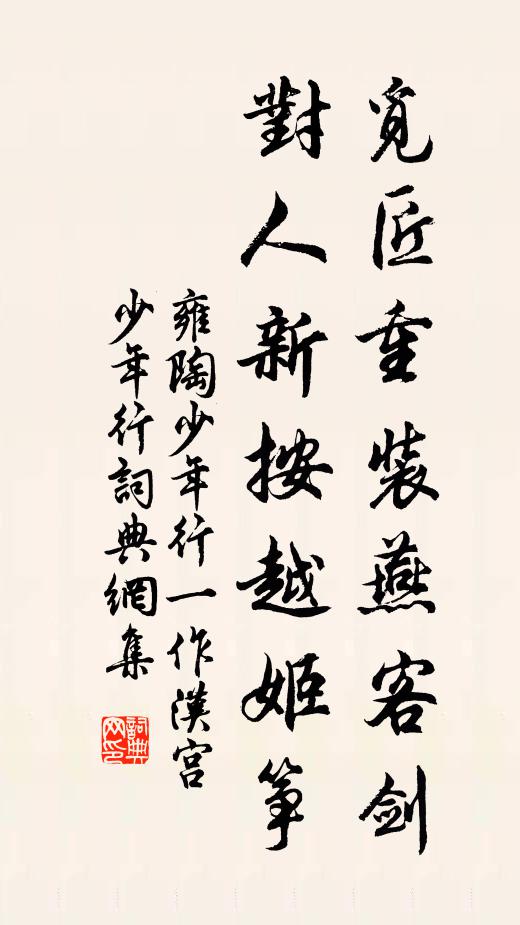 覓匠重裝燕客劍
對人新按越姬箏
雍陶少年行一作漢宮
少年行詞典網集
詞典網印